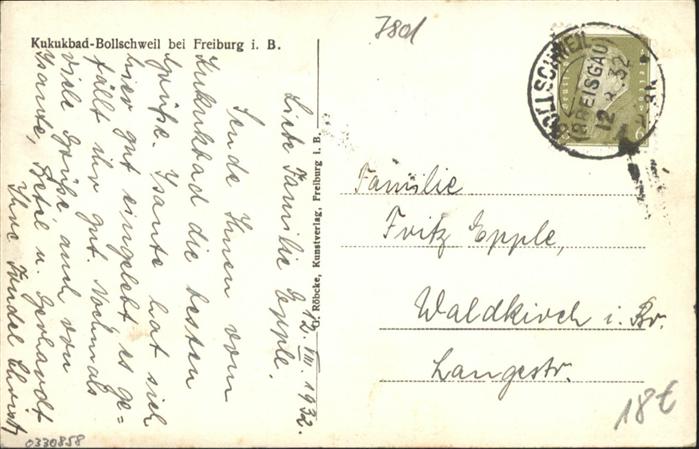 Kukukbad-Bollschweil bei Freiburg i. B.
12. VIII. 1932.
Liebe Familie Epple.
Sende Ihnen vom
Kukukbad die besten
Grüße. Tante hat sich
hier gut eingelebt es ge=
fällt ihr gut. Nochmals
viele Grüße auch von
Tante, u. Gerhardt
Ihre
G. Röbcke, Kunstverlag, Freiburg i. B.
BOLLSCHWEIL
(BREISGAU)
12 8 32
Familie
Fritz Epple,
Waldkirch i. Br.
Langestr.
18€
0330858